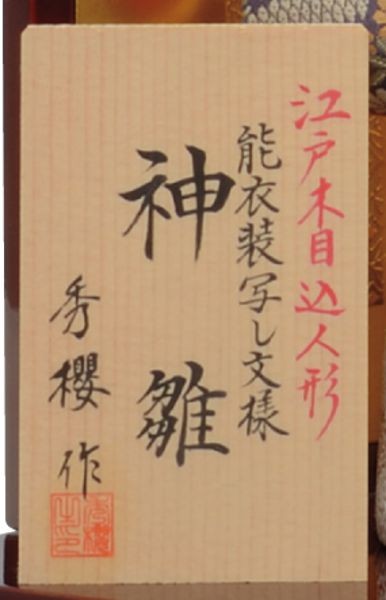 江戸木目込人形
能衣装写し文様
神雛
秀櫻作